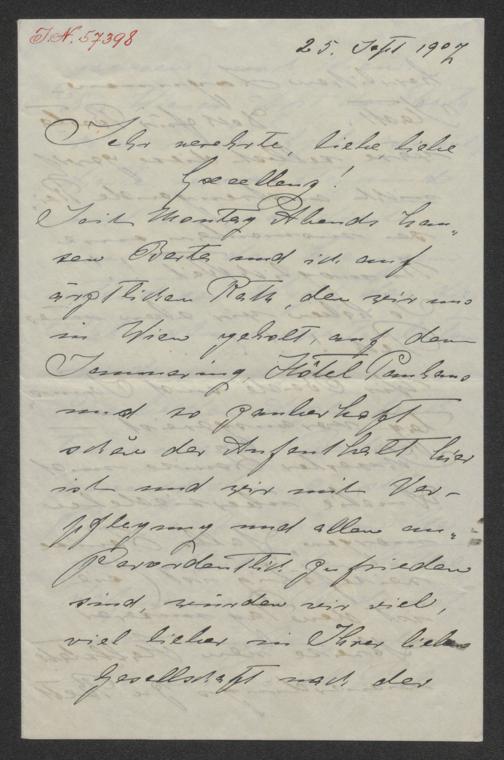 I.N. 57398
25. Sept 1907
Sehr verehrte, liebe liebe
Excellenz!
Seit Montag Abends hau„
sen Berta und ich auf
ärztlichen Rath, den wir uns
in Wien geholt, auf dem
Semmering Hôtel Panhans
und so zauberhaft
schön der Aufenthalt hier
ist und wir mit Ver-
pflegung und allem au„
ßerordentlich zufrieden
sind, würden wir viel,
viel lieber in Ihrer lieben
Gesellschaft nach der